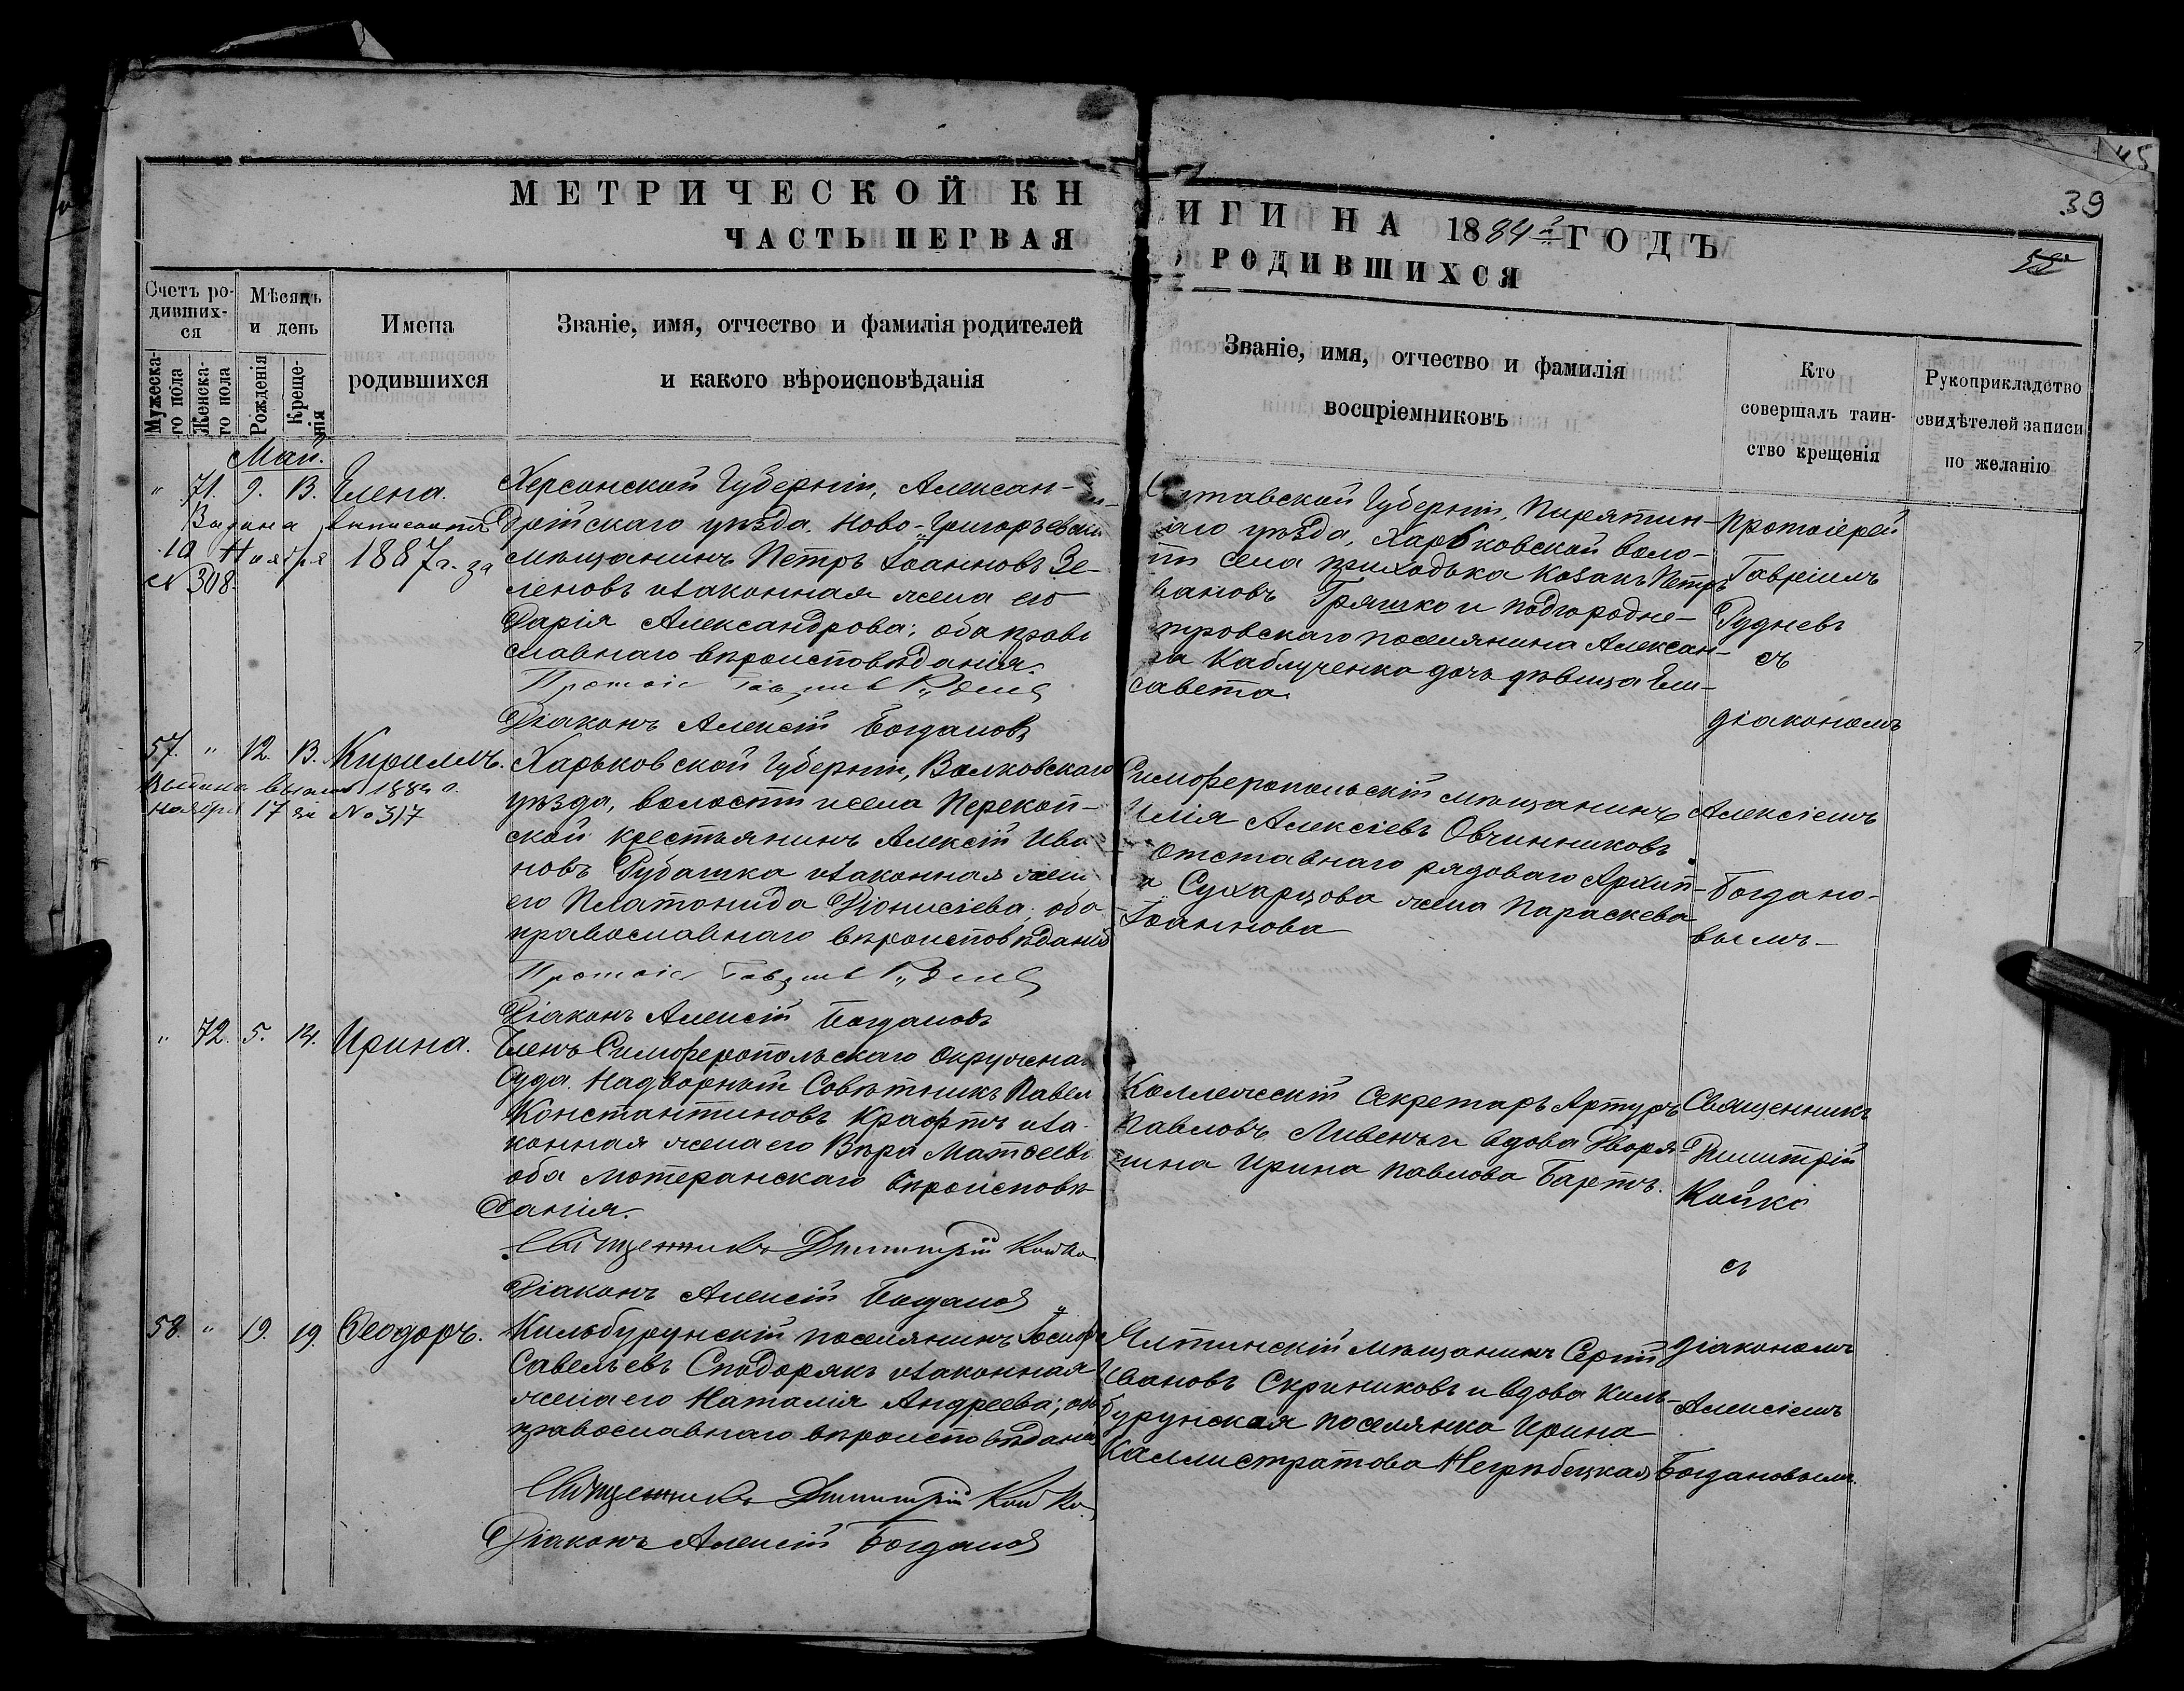 45
39
МЕТРИЧЕСКОЙ КН
ИГИ НА 1884й ГОДЪ
ЧАСТЬ ПЕРВАЯ
О РОДИВШИХСЯ
Счетъ ро-
дивших-
ся
Мужеска-
го пола
Женска-
го пола
Мѣсяцъ
и день
Рожденія
Креще-
нія
Имена
родившихся
Званіе, имя, отчество и фамилія родителей
и какого вѣроисповѣданія
Званіе, имя, отчество и фамилія
воспріемниковъ
Кто
совершалъ таин-
ство крещенія
Рукоприкладство
свидѣтелей записи
по желанію
Май.
" 71. 9. 13. Елена.
10 Ноября 1887г. за
№ 308.
Херсонской Губерніи, Алексан-
дрійскаго уѣзда. Ново-Григорьевскій
мѣщанинъ Петръ Іоанновъ Зе-
леновъ и законная жена его
Дарія Александрова; оба право
славнаго вѣроисповѣданія.
Діаконъ Алексій Богдановъ
тавской Губерніи, Пирятин-
аго уѣзда, Харьковской воло-
ти села Приходька козакъ Петръ
вановъ Гряшко и подгородне-
тровскаго поселянина Алексан-
ра Каблученка дочь дѣвица Ели-
савета
Протоіерей
Гавріилъ
Рудневъ
съ
діакономъ
57. " 12. 13. Кириллъ.
Ноября 17 дн №317
Харьковской Губерніи, Валковскаго
уѣзда, волости и села Перекоп-
ской крестьянинъ Алексій Ива
новъ Рубашка и законная жена
его Платонида Діонисіева; оба
православнаго вѣроисповѣданія
Діаконъ Алексій Богдановъ
Симферопольскій мѣщанинъ
Илія Алексіевъ Овчинниковъ
отставнаго рядоваго Архип-
а Сухарцова жена Параскева
Іоаннова
Алексіемъ
Богдано-
вымъ
" 72. 5. 14. Ирина.
Членъ Симферопольскаго Окружна
Суда. Надворный Совѣтникъ Павел
Константиновъ Крафтъ и за
конная жена его Вѣра Матѳеев
оба лютеранскаго вѣроисповѣ
данія.
Священникъ Димитрій Койко
Діаконъ Алексій Богдановъ
Коллежскій Секретарь Артуръ
Павловъ Ливенъ и вдова Дворя-
нина Ирина Павлова Баретъ.
Священникъ
Димитрій
Койко
съ
58 " 19. 19. Ѳеодоръ.
Кильбурунскій поселянинъ Іосифъ
Савельевъ Сподорякъ и законная
жена его Наталія Андреева; оба
православнаго вѣроисповѣданія
Священникъ Димитрій Койко
Діаконъ Алексій Богдановъ
Ялтинскій мѣщанинъ Сергій
Ивановъ Скриниковъ и вдова Киль-
бурунская поселянка Ирина
Каллистратова Негрѣбецкая
діакономъ
Алексіемъ
Богдановымъ.